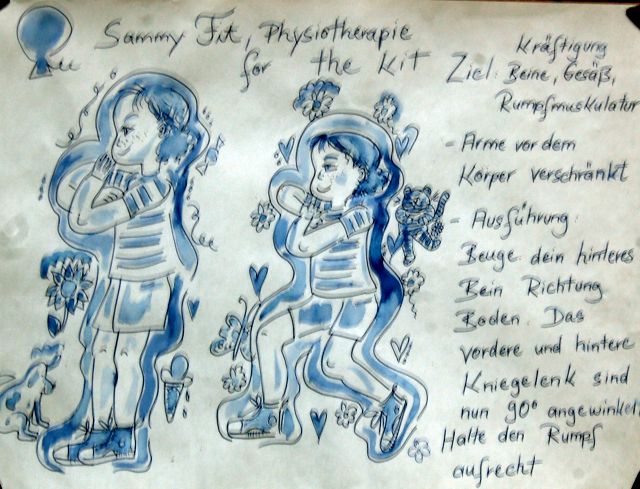 Sammy Fit, Physiotherapie
for the Kit
Kräftigung
Ziel: Beine, Gesäß,
Rumpfmuskulatur
- Arme vor dem
Körper verschränkt
- Ausführung:
Beuge dein hinteres
Bein Richtung
Boden. Das
vordere und hintere
Kniegelenk sind
nun 90° angewinkelt
Halte den Rumpf
aufrecht